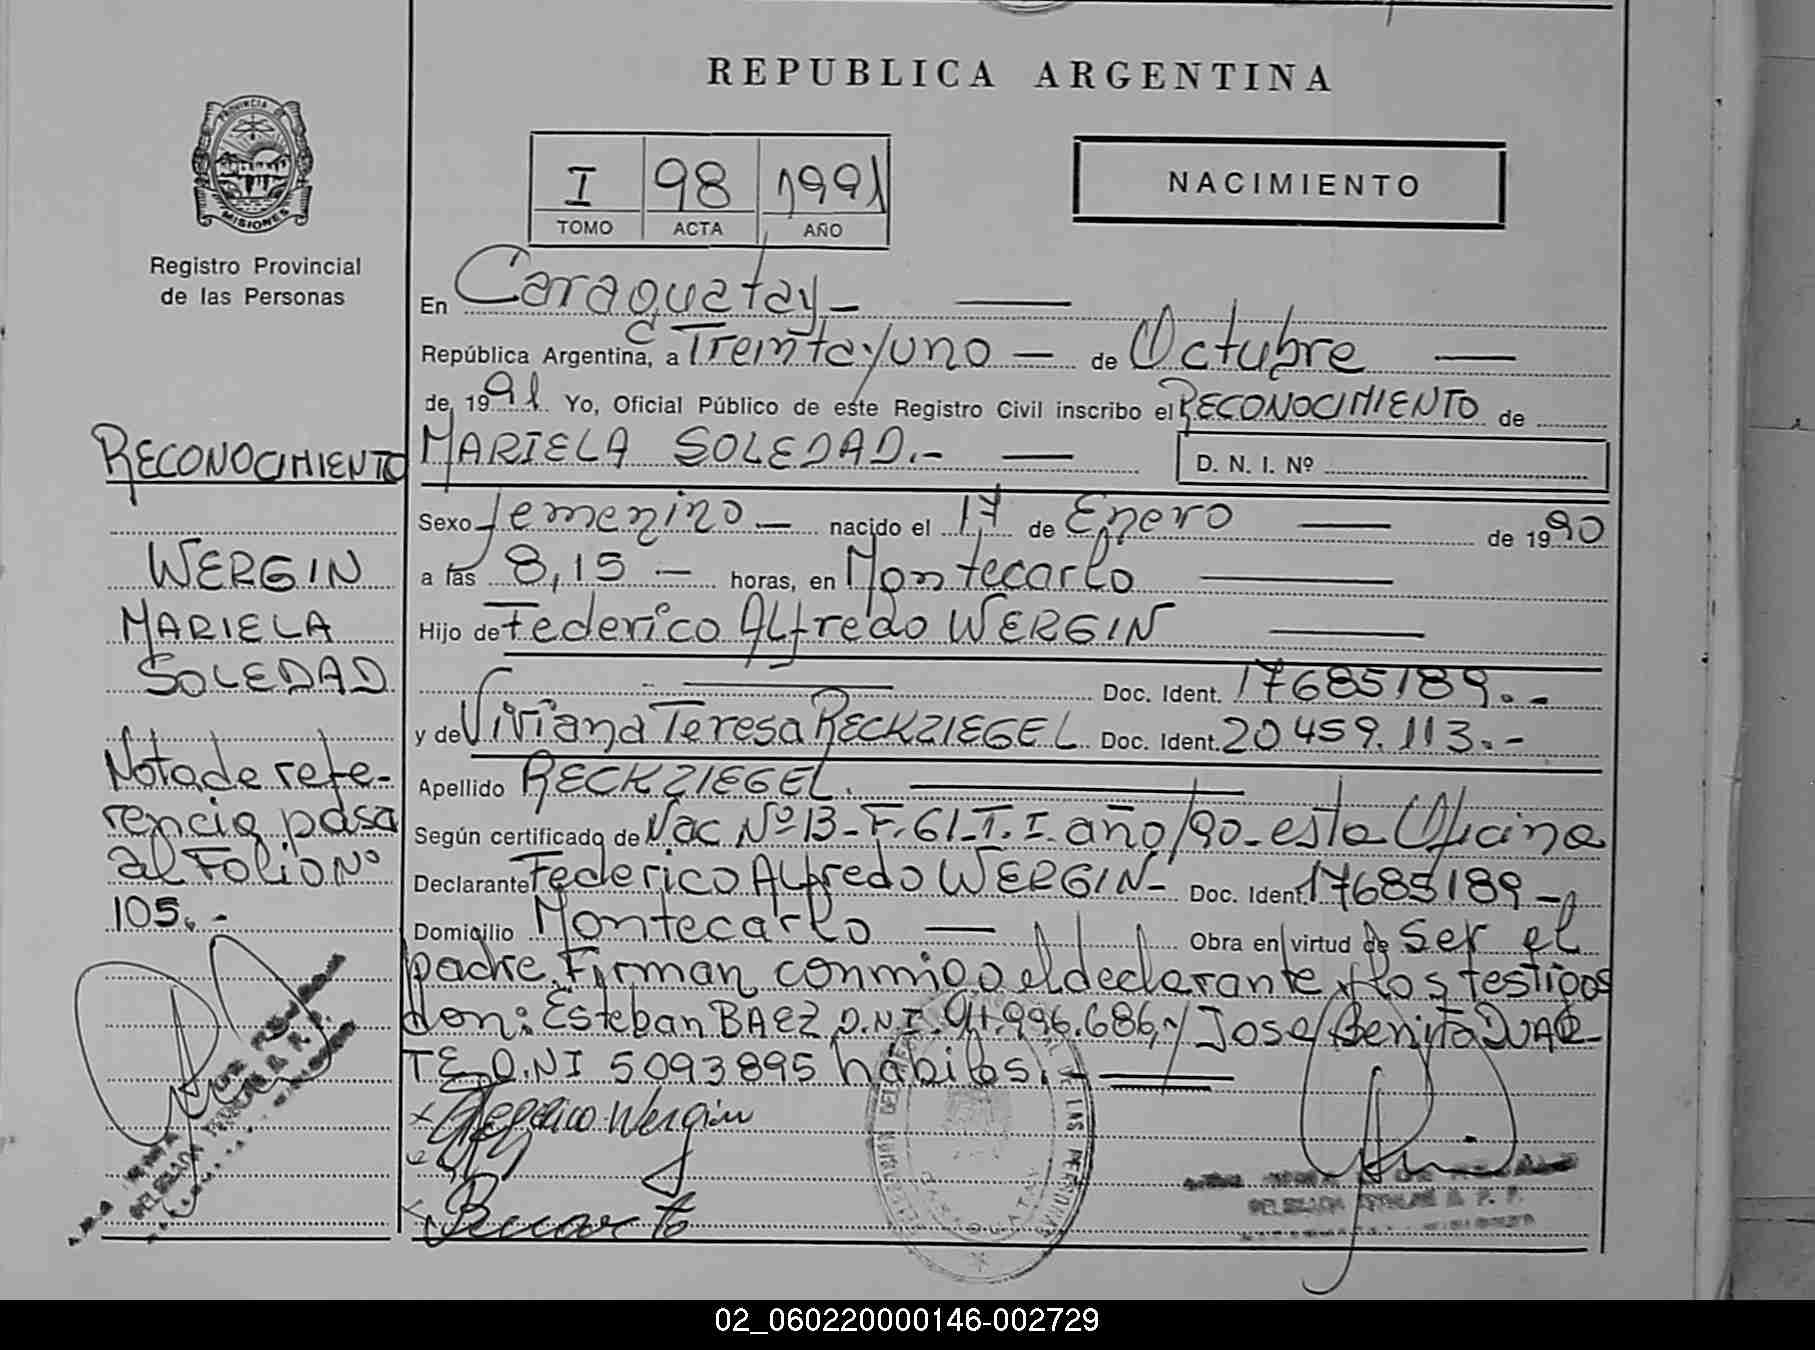 REPUBLICA ARGENTINA
PROVINCIA DE
MISIONES
Registro Provincial
de las Personas
I 98 1991
TOMO ACTA AÑO
NACIMIENTO
En Caraguatay -
República Argentina, a Treinta y uno — de Octubre —
de 1991 Yo, Oficial Público de este Registro Civil inscribo el RECONOCIMIENTO de
MARIELA SOLEDAD.- —
D. N. I. Nº
Sexo femenino — nacido el 17 de Enero — de 1990
a las 8,15 — horas, en Montecarlo —
Hijo de Federico Alfredo WERGIN —
Doc. Ident. 17685189.-
y de Viviana Teresa RECKZIEGEL Doc. Ident. 20 459.113.-
Apellido RECKZIEGEL. —
Según certificado de Nac. Nº 13 - F. 61 - T. I. año/90 - esta Oficina
Declarante Federico Alfredo WERGIN - Doc. Ident. 17685189 -
Domicilio Montecarlo — Obra en virtud de ser el
padre. Firman conmigo el declarante y los testigos
don: Esteban BAEZ D.N.I. 91.996.686, y Jose Benito DUAR-
TE D.NI 5093895 habiles. -
Federico Wergin
RECONOCIMIENTO
WERGIN
MARIELA
SOLEDAD
Nota de refe-
rencia pasa
al Folio Nº
105. -
DELEGADA TITULAR R. P. P.
02_060220000146-002729